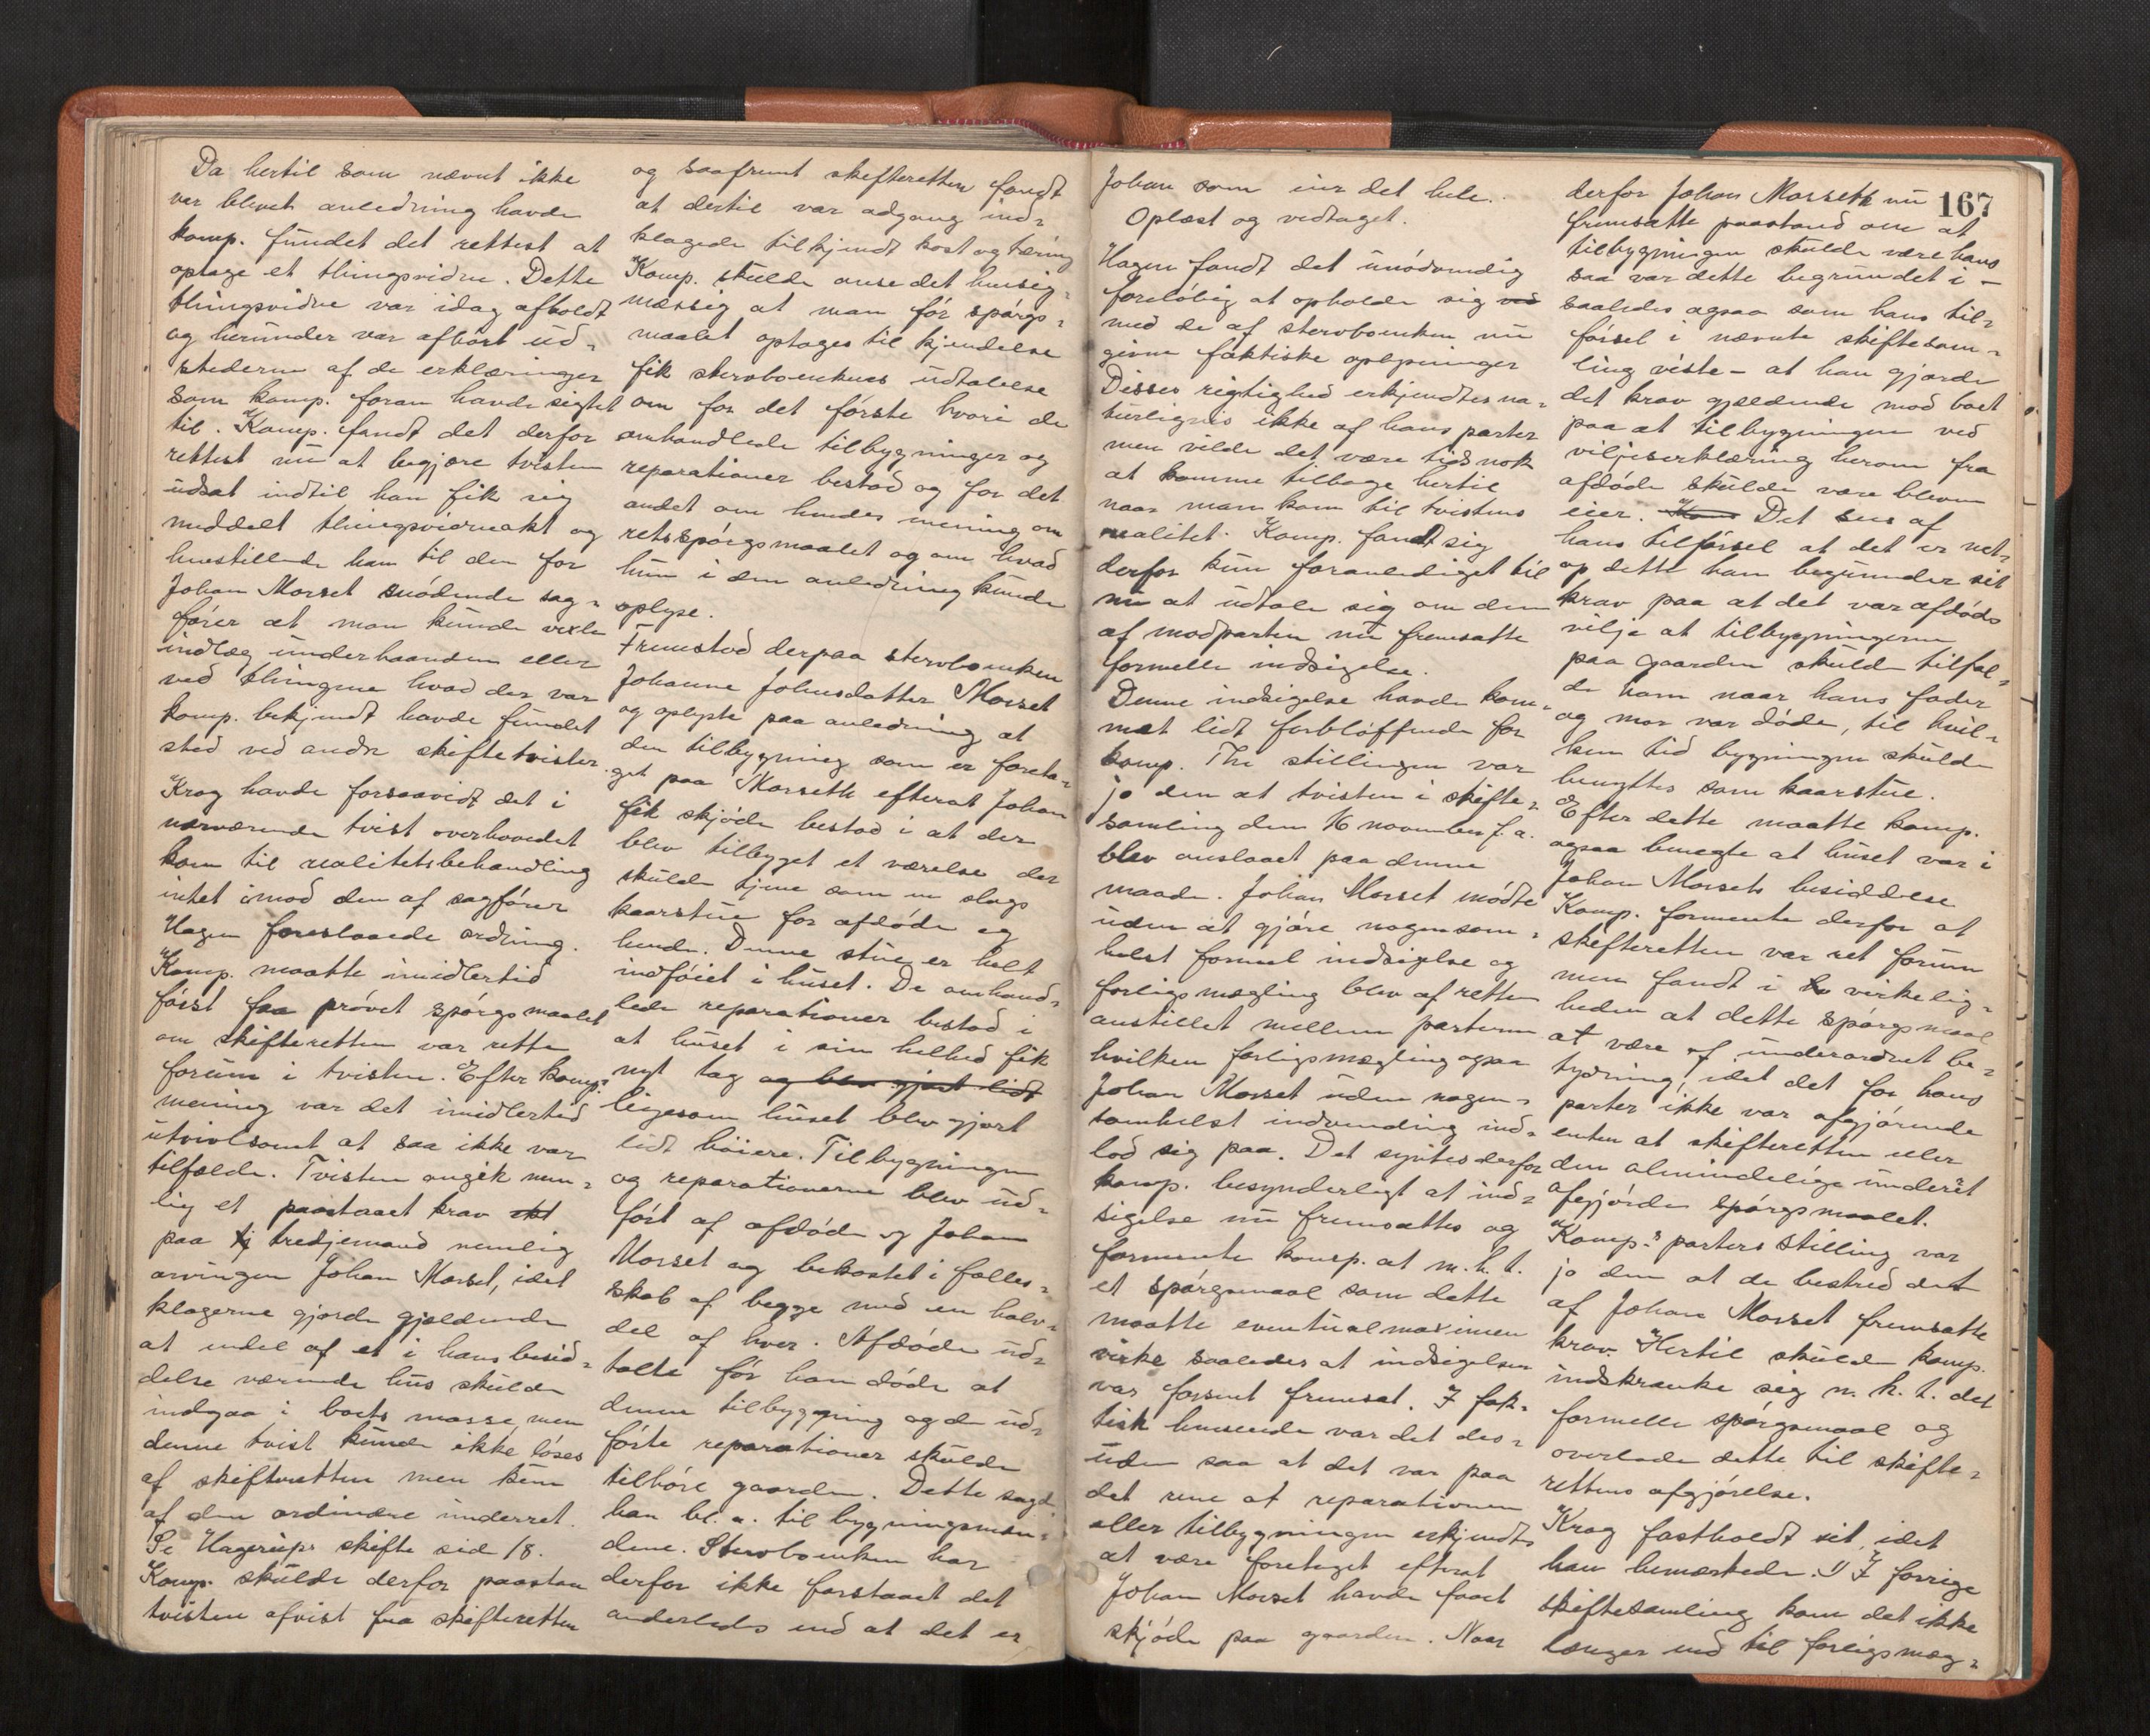 Da hertil som nævnt ikke
var blevet anledning havde
komp. fundet det rettest at
optage et thingsvidne. Dette
thingsvidne var idag afholdt
og herunder var afhørt ud-
stederne af de erklæringer
som komp. foran havde sigtet
til. Komp. fandt det derfor
rettest nu at begjære tvisten
udsat indtil han fik sig
meddelt thingsvidneakt og
henstillede han til den for
Johan Morset mødende sag-
fører at man kunde vexle
indlæg underhaanden eller
ved thingene hvad der var
komp. bekjendt havde fundet
sted ved andre skiftetvister.
Krog havde forsaavidt det i
nærværende tvist overhovedet
kom til realitetsbehandling
intet imod den af sagfører
Hagen foreslaaede ordning.
Komp. maatte imidlertid
først faa prøvet spørgsmaalet
om skifteretten var rette
forum i tvisten. Efter komp.
mening var det imidlertid
utvivlsomt at saa ikke var
tilfælde. Tvisten angik nem-
lig et paastaaet krav
paa tredjemand nemlig
arvingen Johan Morset, idet
klagerne gjorde gjældende
at endel af et i hans besid-
delse værende hus skulde
indgaa i boets masse, men
denne tvist kunde ikke løses
af skifteretten men kun
af den ordinære underret.
Se Hagerups skifte sid 18.
Komp. skulde derfor paastaa
tvisten afvist fra skifteretten
og saafremt skifteretten fandt
at dertil var adgang ind-
klagede tilkjendt kost og tæring
Komp. skulde anse det hensig-
mæssig at man før spørgs-
maalet optages til kjendelse
fik stervboenkens udtalelse
om for det første hvori de
omhandlede tilbygninger og
reparationer bestod og for det
andet om hendes mening om
retsspørgsmaalet og om hvad
hun i den anledning kunde
oplyse.
Fremstod derpaa stervboenken
Johanne Johnsdatter Morset
og oplyste paa anledning at
den tilbygning som er foreta-
get paa Morseth efterat Johan
fik skjøde bestod i at der
blev tilbygget et værelse der
skulde tjene som en slags
kaarstue for afdøde og
hende. Denne stue er helt
indføiet i huset. De omhand-
lede reparationer bestod i
at huset i sin helhed fik
nyt tag og blev gjort lidt
ligesom huset blev gjort
lidt høiere. Tilbygningen
og reparationerne blev ud-
ført af afdøde og Johan
Morset og bekostet i fælles-
skab af begge med en halv-
del af hver. Afdøde ud-
talte før han døde at
denne tilbygning og de ud-
førte reparationer skulde
tilhøre gaarden. Dette sagde
han bl. a. til bygningsmæn-
dene. Stervboenken har
derfor ikke forstaaet det
anderledes end at det er
Johan som eier det hele.
Oplæst og vedtaget.
Hagen fandt det unødvendig
foreløbig at opholde sig ved
med de af stervboenken nu
givne faktiske oplysninger
Disses rigtighed erkjendtes na-
turligvis ikke af hans parter
men vilde det være tids nok
at komme tilbage hertil
naar man kom til tvistens
realitet. Komp. fandt sig
derfor kun foranlediget til
nu at udtale sig om den
af modparten nu fremsatte
formelle indsigelse.
Denne indsigelse havde kom-
met lidt forbløffende for
komp. Thi stillingen var
jo den at tvisten i skifte-
samling den 16 november f. a.
blev anslaaet paa denne
maade. Johan Morset mødte
uden at gjøre nogensom-
helst formel indsigelse og
forligsmægling blev af retten
anstillet mellem parterne
hvilken forligsmægling ogsaa
Johan Morset uden nogen-
somhelst indvending ind-
lod sig paa. Det syntes derfor
komp. besynderligt at ind-
sigelse nu fremsattes og
formente komp. at m. h. t.
et spørgsmaal som dette
maatte eventualmaximen
virke saaledes at indsigelsen
var forsent fremsat. I fak-
tisk henseende var det des-
uden saa at det var paa
det rene at reparationen
eller tilbygningen erkjendtes
at være foretaget efterat
Johan Morset havde faaet
skjøde paa gaarden. Naar
167
derfor Johan Morseth nu
fremsatte paastand om at
tilbygningen skulde være hans
saa var dette begrundet i -
saaledes ogsaa som hans til-
førsel i nævnte skiftesam-
ling viste - at han gjorde
det krav gjældende mod boet
paa at tilbygningen ved
viljeserklæring herom fra
afdøde skulde være bleven
eier. Det sees af
hans tilførsel at det er net-
op dette han begrunder sit
krav paa at det var afdøds
vilje at tilbygningerne
paa gaarden skulde tilfal-
de ham naar hans fader
og mor var døde, til hvil-
ken tid bygningen skulde
benyttes som kaarstue.
Efter dette maatte komp.
ogsaa benegte at huset var i
Johan Morsets besiddelse
Komp. formente derfor at
skifteretten var ret forum
men fandt i virkelig-
heden at dette spørgsmaal
at være af underordnet be-
tydning, idet det for hans
parter ikke var afgjørende
enten at skifteretten eller
den almindelige underet
afgjørde spørgsmaalet.
Komp.s parters stilling var
jo den at de bestred det
af Johan Morset fremsatte
krav. Hertil skulde komp.
indskrænke sig m. h. t. det
formelle spørgsmaal og
overlade dette til skifte-
rettens afgjørelse.
Krog fastholdt sit idet
han bemærkede: I forrige
skiftesamling kom det ikke
længer end til forligsmæg-